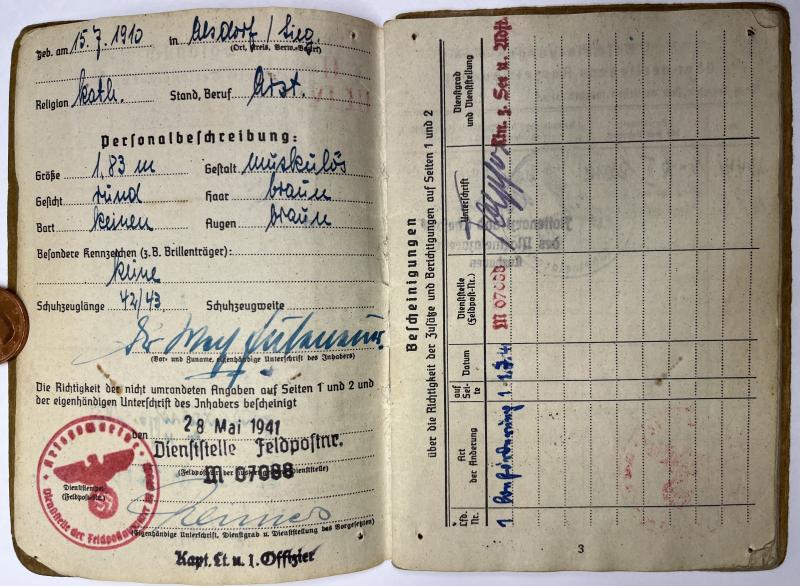 geb. am 15.7.1910 in Alsdorf / Sieg.
(Ort, Kreis, Verw.-Bezirk)
Religion kath. Stand, Beruf Arzt.
Personalbeschreibung:
Größe 1,83 m Gestalt muskulös
Gesicht rund Haar braun
Bart keinen Augen braun
Besondere Kennzeichen (z.B. Brillenträger):
keine
Schuhzeuglänge 42/43 Schuhzeugweite
Dr
(Vor- und Zuname, eigenhändige Unterschrift des Inhabers)
Die Richtigkeit der nicht umrandeten Angaben auf Seiten 1 und 2 und
der eigenhändigen Unterschrift des Inhabers bescheinigt
den 28 Mai 1941
Dienststelle Feldpostnr.
M 07088
Kriegsmarine
Dienststelle der Feldpostnummer
Dienststempel
(Feldpost-Nr.)
(Eigenhändige Unterschrift, Dienstgrad u. Dienststellung des Vorgesetzten)
Kapt. Lt. u. I. Offizier
Bescheinigungen
über die Richtigkeit der Zusätze und Berichtigungen auf Seiten 1 und 2
Lfd. Nr.
Art der Änderung
auf Seite
Datum
Dienststelle (Feldpost-Nr.)
Unterschrift
Dienstgrad und Dienststellung
1 Beförderung 1
M 07088
Ktn. z. See u. Kdt.
3